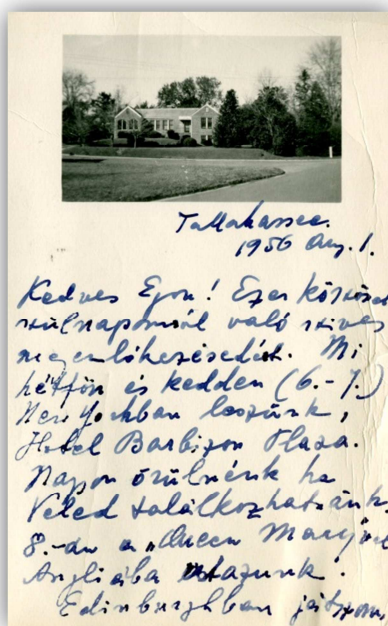 Tallahassee.
1956 Aug. 1.
Kedves Egon! Ezer köszönet
szülnapomról való szives
megemlékezésedért. Mi
hétfőn és kedden (6.-7.)
New Yorkban leszünk,
Hotel Barbizon Plaza.
Nagyon örülnénk ha
Veled találkozhatnánk.
8.-án a „Queen Mary"vel
Angliába utazunk.
Edinburghban játszom,